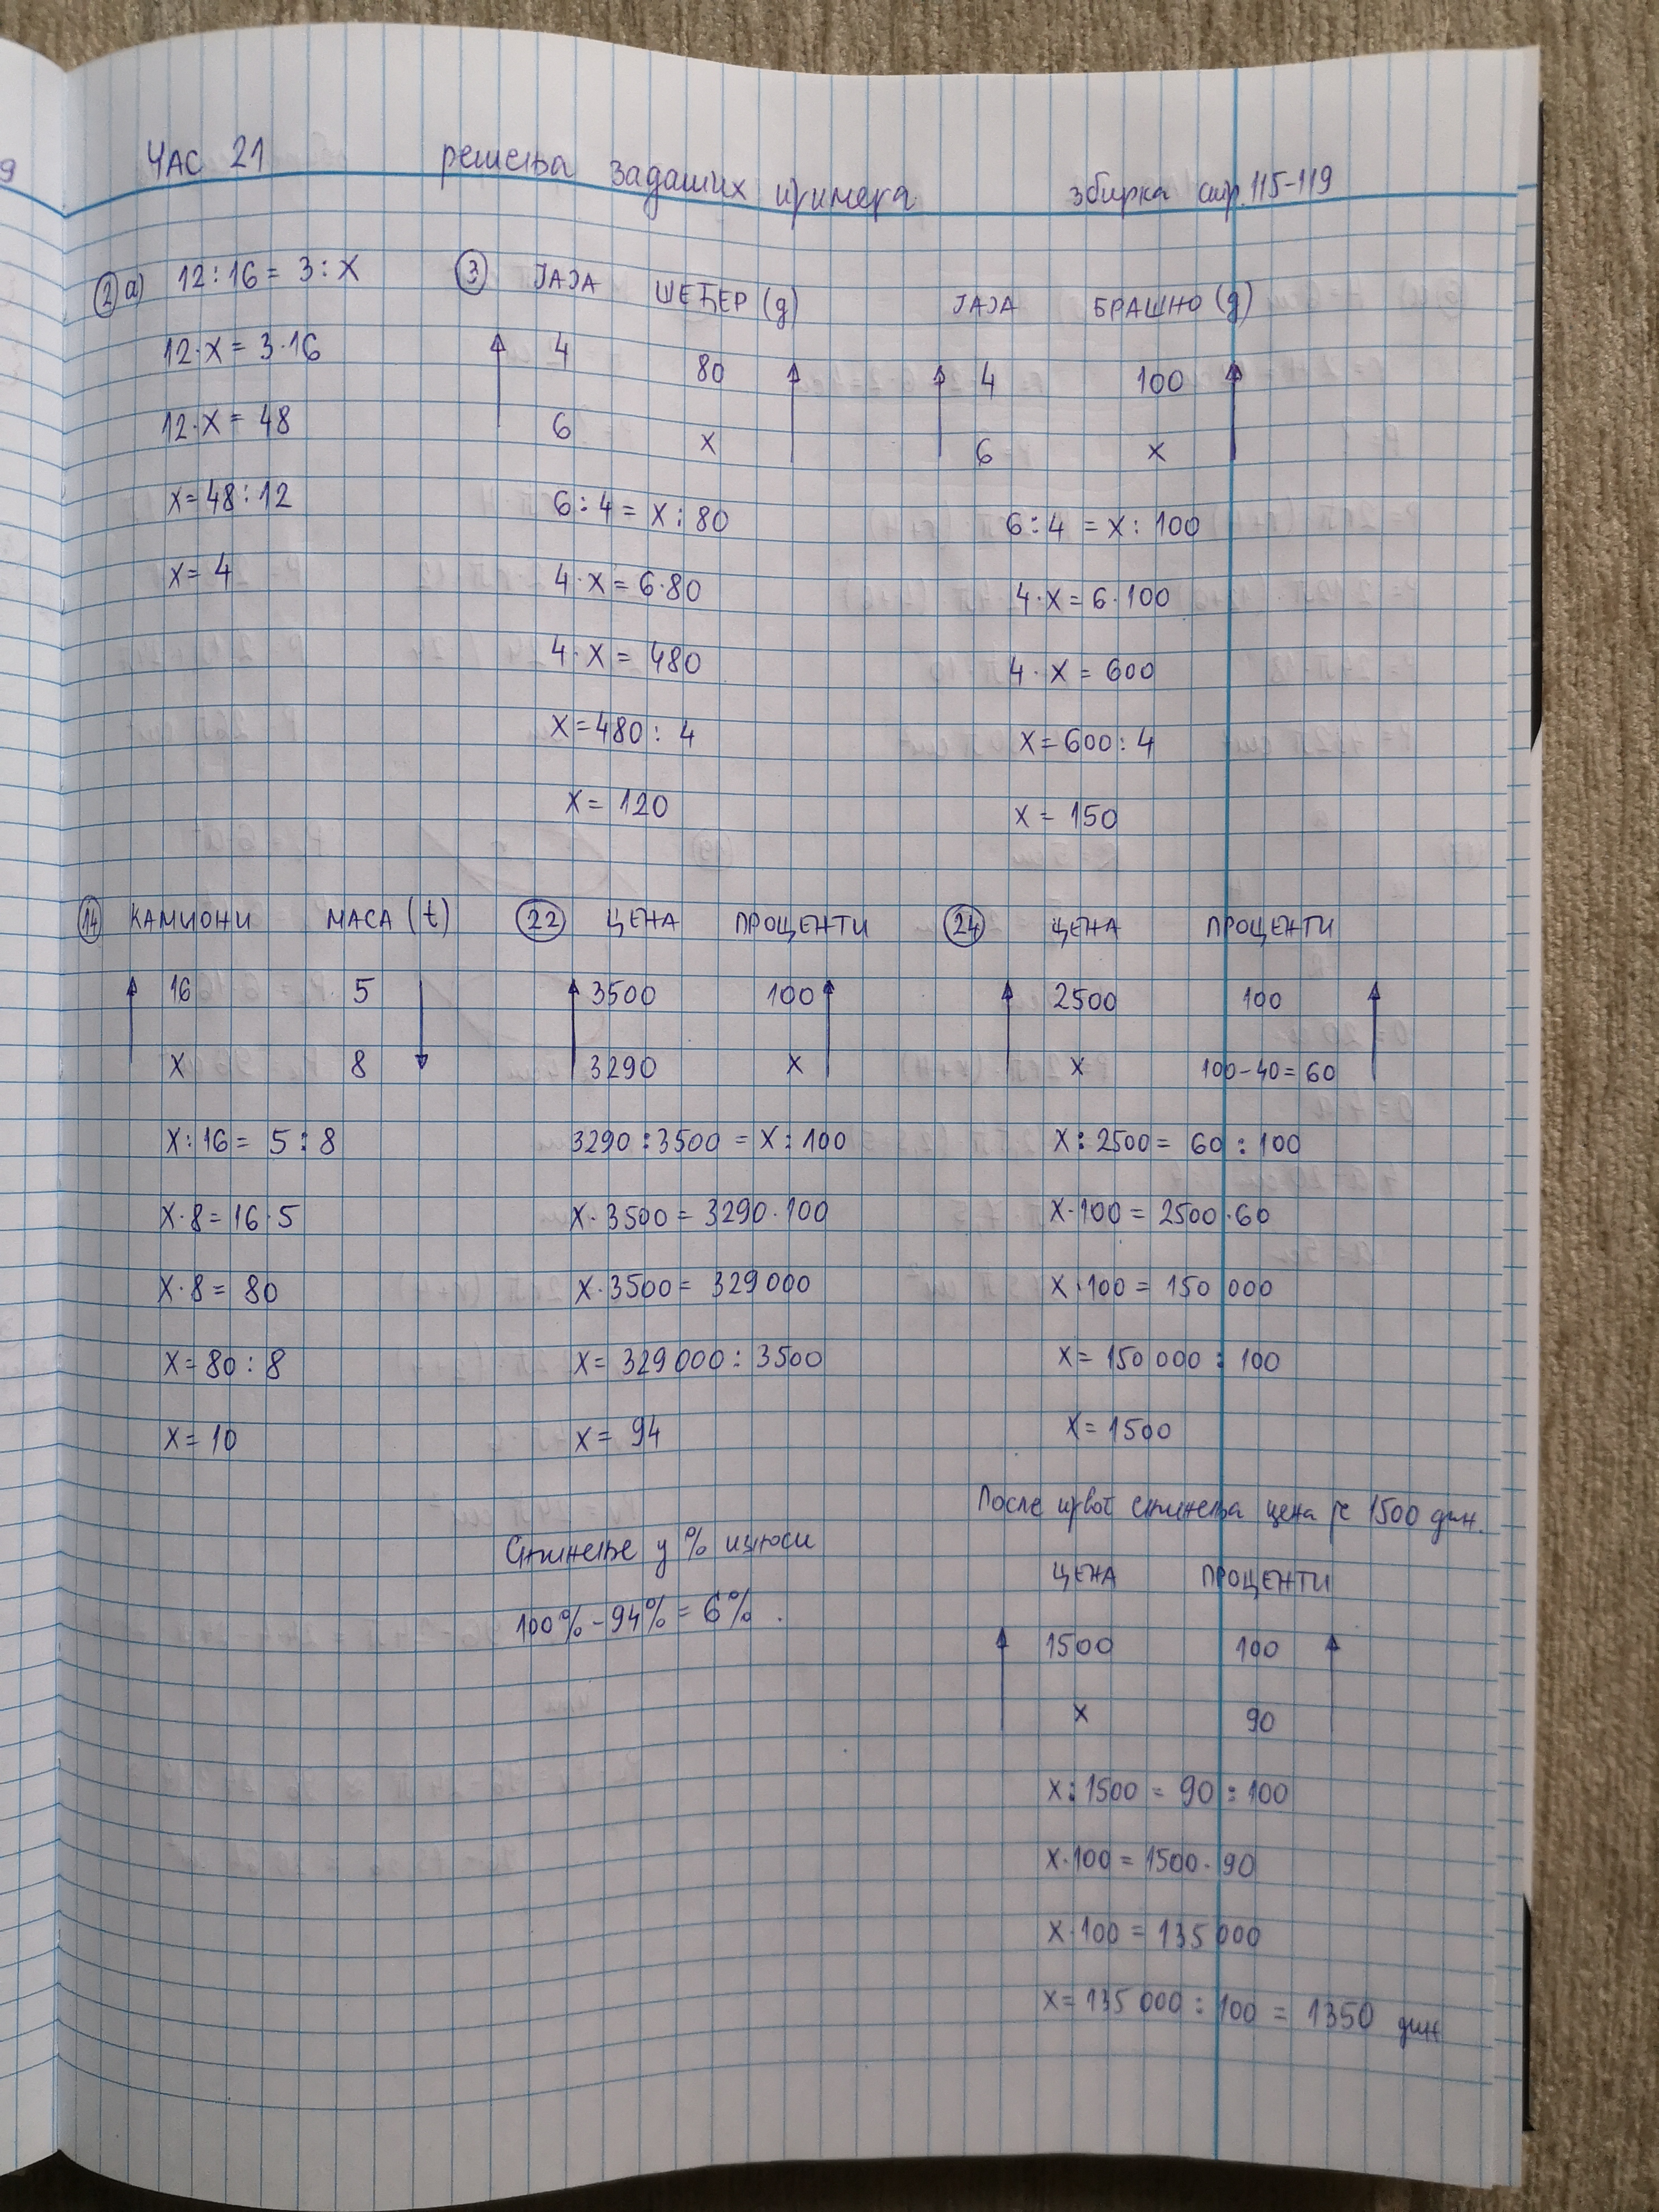 ЧАС 21 решења задатих примера збирка стр. 115-119
2 а) 12 : 16 = 3 : x
12 · x = 3 · 16
12 · x = 48
x = 48 : 12
x = 4
3 ЈАЈА ШЕЋЕР (g)
4 80
6 x
6 : 4 = x : 80
4 · x = 6 · 80
4 · x = 480
x = 480 : 4
x = 120
ЈАЈА БРАШНО (g)
4 100
6 x
6 : 4 = x : 100
4 · x = 6 · 100
4 · x = 600
x = 600 : 4
x = 150
14 КАМИОНИ МАСА (t)
16 5
x 8
x : 16 = 5 : 8
x · 8 = 16 · 5
x · 8 = 80
x = 80 : 8
x = 10
22 ЦЕНА ПРОЦЕНТИ
3500 100
3290 x
3290 : 3500 = x : 100
x · 3500 = 3290 · 100
x · 3500 = 329 000
x = 329 000 : 3500
x = 94
Снижење у % износи
100% - 94% = 6% .
24 ЦЕНА ПРОЦЕНТИ
2500 100
x 100 - 40 = 60
x : 2500 = 60 : 100
x · 100 = 2500 · 60
x · 100 = 150 000
x = 150 000 : 100
x = 1500
После првог снижења цена је 1500 дин.
ЦЕНА ПРОЦЕНТИ
1500 100
x 90
x : 1500 = 90 : 100
x · 100 = 1500 · 90
x · 100 = 135 000
x = 135 000 : 100 = 1350 дин